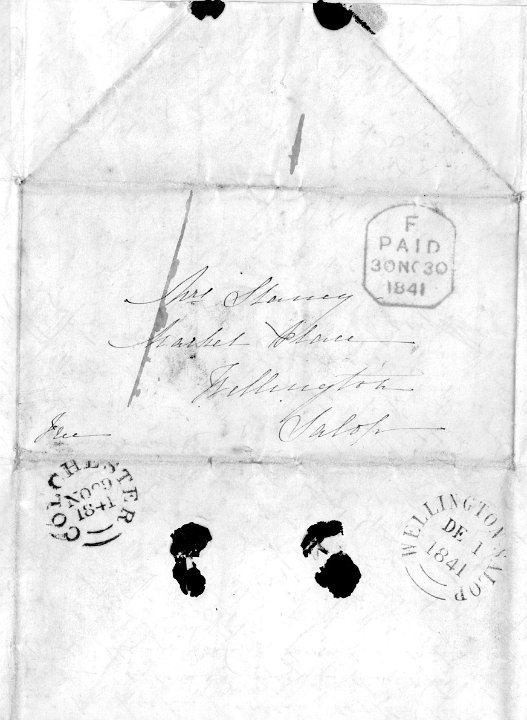 F
PAID
30 NO 30
1841
Mrs Stanney
Market Place
Wellington
Salop
COLCHESTER
NO 29
1841
WELLINGTON SALOP
DE 1
1841